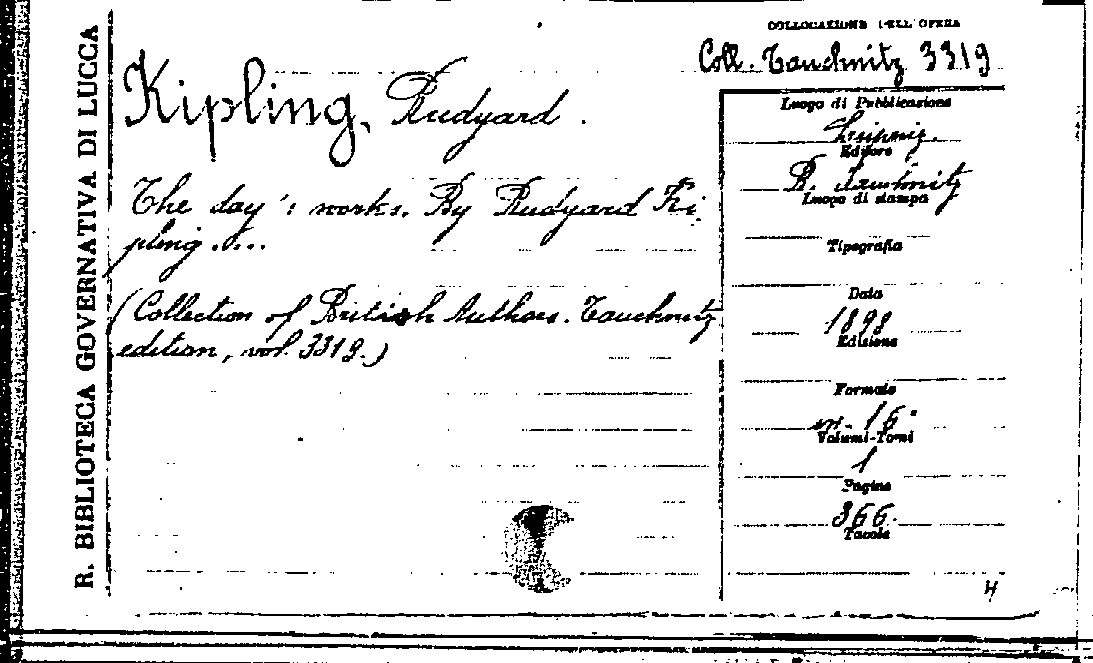 R. BIBLIOTECA GOVERNATIVA DI LUCCA
COLLOCAZIONE DELL'OPERA
Coll. Tauchnitz 3319
Kipling, Rudyard.
The day's works. By Rudyard Ki-
pling....
(Collection of British Authors. Tauchnitz
edition, vol. 3319.)
Luogo di Pubblicazione
Leipzig.
Editore
B. Tauchnitz
Luogo di stampa
Tipografia
Data
1898
Edizione
Formato
in-16°
Volumi-Tomi
1
Pagine
366.
Tavole
H